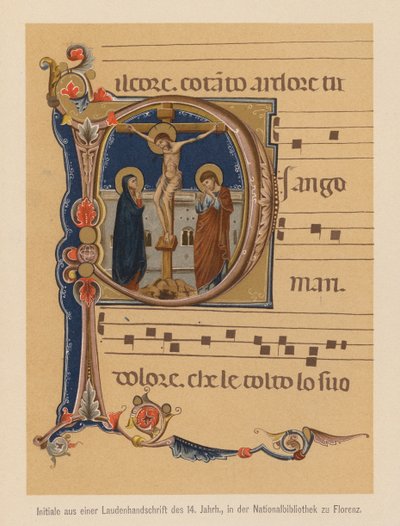 il core. cotãto ardore tu
P iango
man.
dolore. che le tolto lo suo
Initiale aus einer Laudenhandschrift des 14. Jahrh., in der Nationalbibliothek zu Florenz.